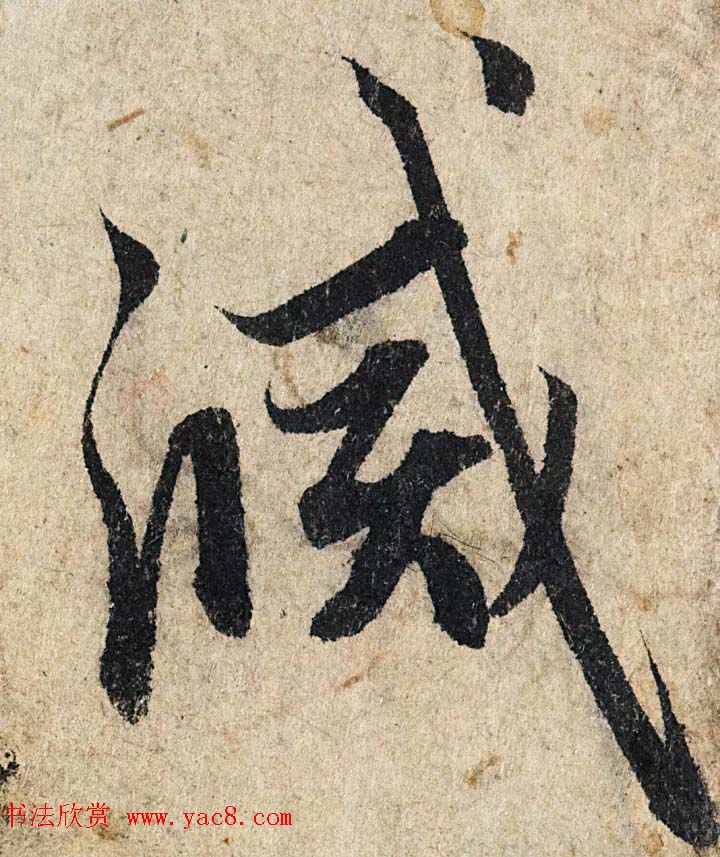 滅
书法欣赏 www.yac8.com